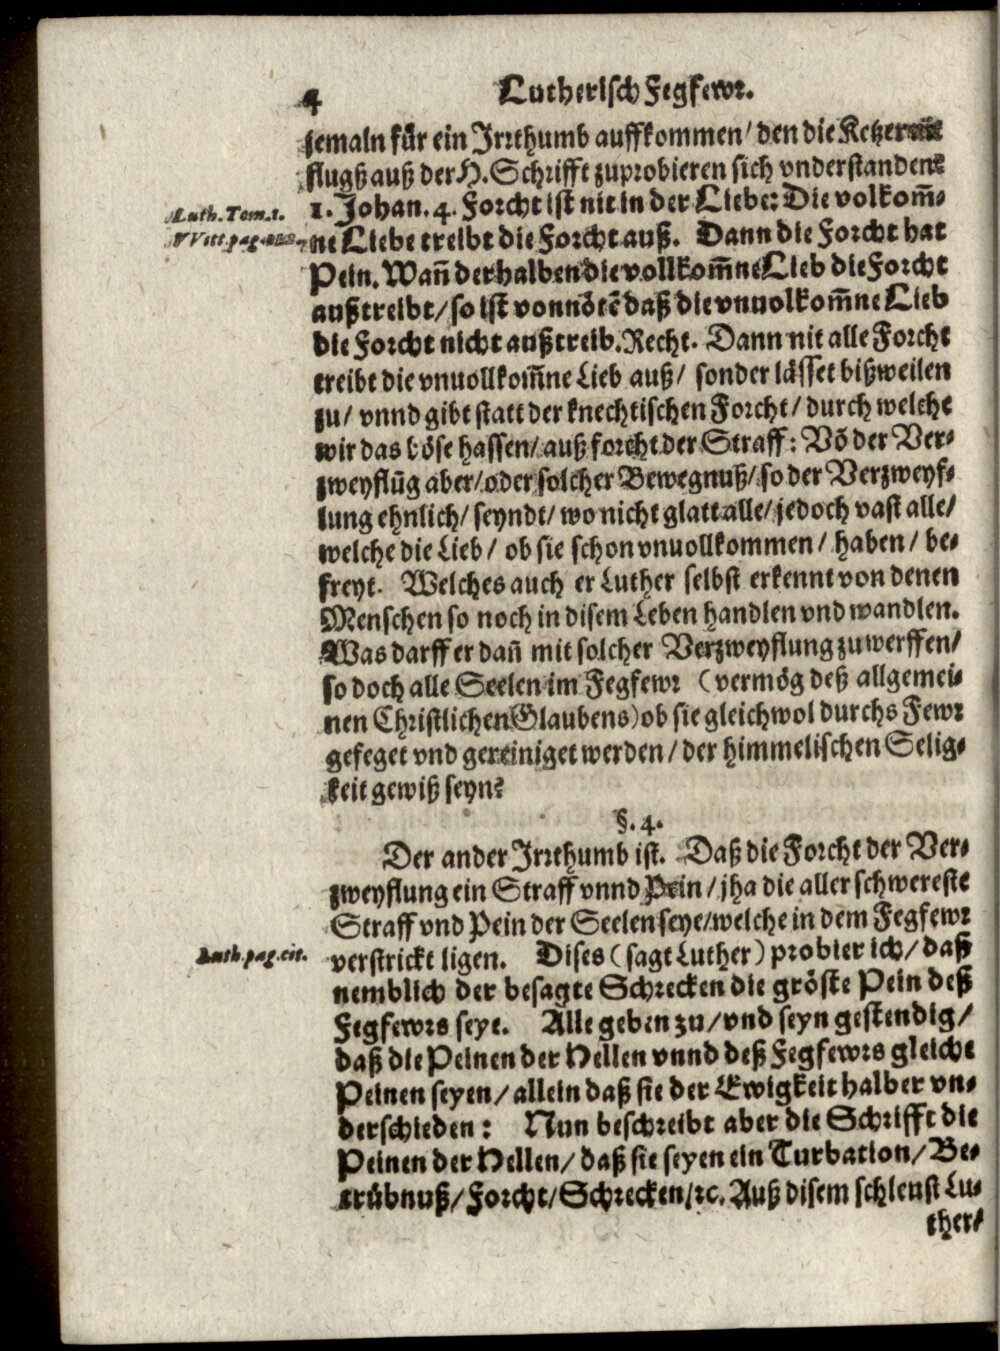 4 Lutherisch Fegfewr.
jemaln für ein Irrthumb auffkommen / den die Ketzer
flugß auß der H. Schrifft zuprobieren sich vnderstanden?
Luth. Tom. 1.
VVitt. pag.
1. Johan. 4. Forcht ist nit in der Liebe: Die volkom̃-
ne Liebe treibt die Forcht auß. Dann die Forcht hat
Pein. Wañ derhalben die vollkom̃ne Lieb die Forcht
außtreibt / so ist vonnötẽ daß die vnuolkom̃ne Lieb
die Forcht nicht außtreib. Recht. Dann nit alle Forcht
treibt die vnuollkom̃ne Lieb auß / sonder lässet bißweilen
zu / vnnd gibt statt der knechtischen Forcht / durch welche
wir das böse hassen / auß forcht der Straff: Võ der Ver-
zweyflũg aber / oder solcher Bewegnuß / so der Verzweyf-
lung ehnlich / seyndt / wo nicht glatt alle / jedoch vast alle /
welche die Lieb / ob sie schon vnuollkommen / haben / be-
freyt. Welches auch er Luther selbst erkennt von denen
Menschen so noch in disem Leben handlen vnd wandlen.
Was darff er dañ mit solcher Verzweyflung zuwerffen /
so doch alle Seelen im Fegfewr (vermög deß allgemei-
nen Christlichen Glaubens) ob sie gleichwol durchs Fewr
gefeget vnd gereiniget werden / der himmelischen Selig-
keit gewiß seyn?
§. 4.
Der ander Irrthumb ist. Daß die Forcht der Ver-
zweyflung ein Straff vnnd Pein / jha die aller schwereste
Straff vnd Pein der Seelen seye / welche in dem Fegfewr
Luth. pag. cit.
verstrickt ligen. Dises (sagt Luther) probier ich / daß
nemblich der besagte Schrecken die gröste Pein deß
Fegfewrs seye. Alle geben zu / vnd seyn gestendig /
daß die Peinen der Hellen vnnd deß Fegfewrs gleiche
Peinen seyen / allein daß sie der Ewigkeit halber vn-
derschieden: Nun beschreibt aber die Schrifft die
Peinen der Hellen / daß sie seyen ein Turbation / Be-
trübnuß / Forcht / Schrecken / ꝛc. Auß disem schleust Lu-
ther /